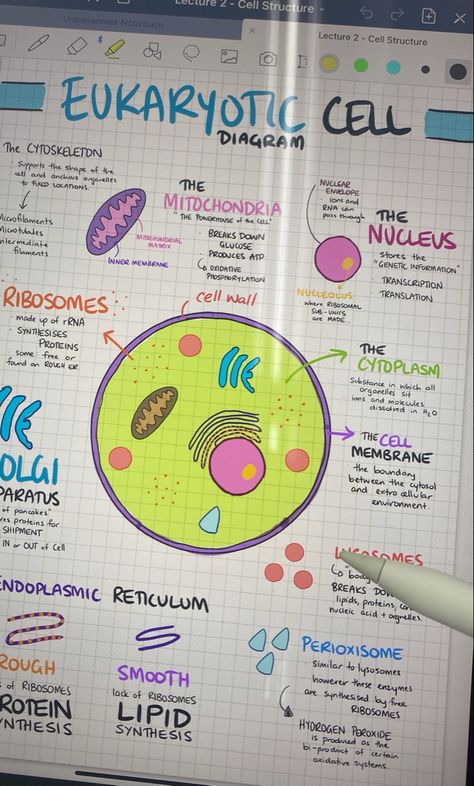 Lecture 2 - Cell Structure
Unbenanntes Notizbuch
Lecture 2 - Cell Structure
EUKARYOTIC CELL
DIAGRAM
The CYTOSKELETON
• Supports the shape of the
cell and anchors organelles
to FIXED LOCATIONS.
Microfilaments
Microtubules
ntermediate
filaments
THE
MITOCHONDRIA
"THE POWERHOUSE of the CELL"
• BREAKS DOWN
GLUCOSE
• PRODUCES ATP
OXIDATIVE
PHOSPHORYLATION
MITOCHONDRIAL
MATRIX
INNER MEMBRANE
NUCLEAR
ENVELOPE
• ions and
RNA can
pass through
THE
NUCLEUS
Stores the
"GENETIC INFORMATION"
TRANSCRIPTION
TRANSLATION
NUCLEOLUS
where RIBOSOMAL
SUB-UNITS
are MADE
RIBOSOMES
made up of rRNA
• SYNTHESISES
PROTEINS
some free or
found on ROUGH ER
cell wall
THE
CYTOPLASM
Substance in which all
organelles sit
ions and molecules
dissolved in H2O
THE CELL
MEMBRANE
the boundary
between the cytosol
and extra cellular
environment.
OLGI
PARATUS
of pancakes"
res proteins for
SHIPMENT
IN or OUT of Cell
LYSOSOMES
"body
BREAKS DOWN
lipids, proteins,
nucleic acid + organelles.
ENDOPLASMIC RETICULUM
ROUGH
of RIBOSOMES
PROTEIN
YNTHESIS
SMOOTH
lack of RIBOSOMES
LIPID
SYNTHESIS
PERIOXISOME
• Similar to lysosomes
however these enzymes
are synthesised by free
RIBOSOMES
HYDROGEN PEROXIDE
is produced as the
bi-product of certain
oxidative systems.